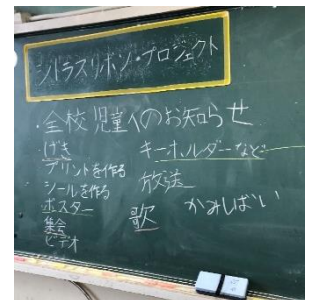 シトラスリボン・プロジェクト
・全校児童へのお知らせ
・げき
プリントを作る
シールを作る
ポスター
集会
ビデオ
キーホルダーなど
放送
歌
かみしばい